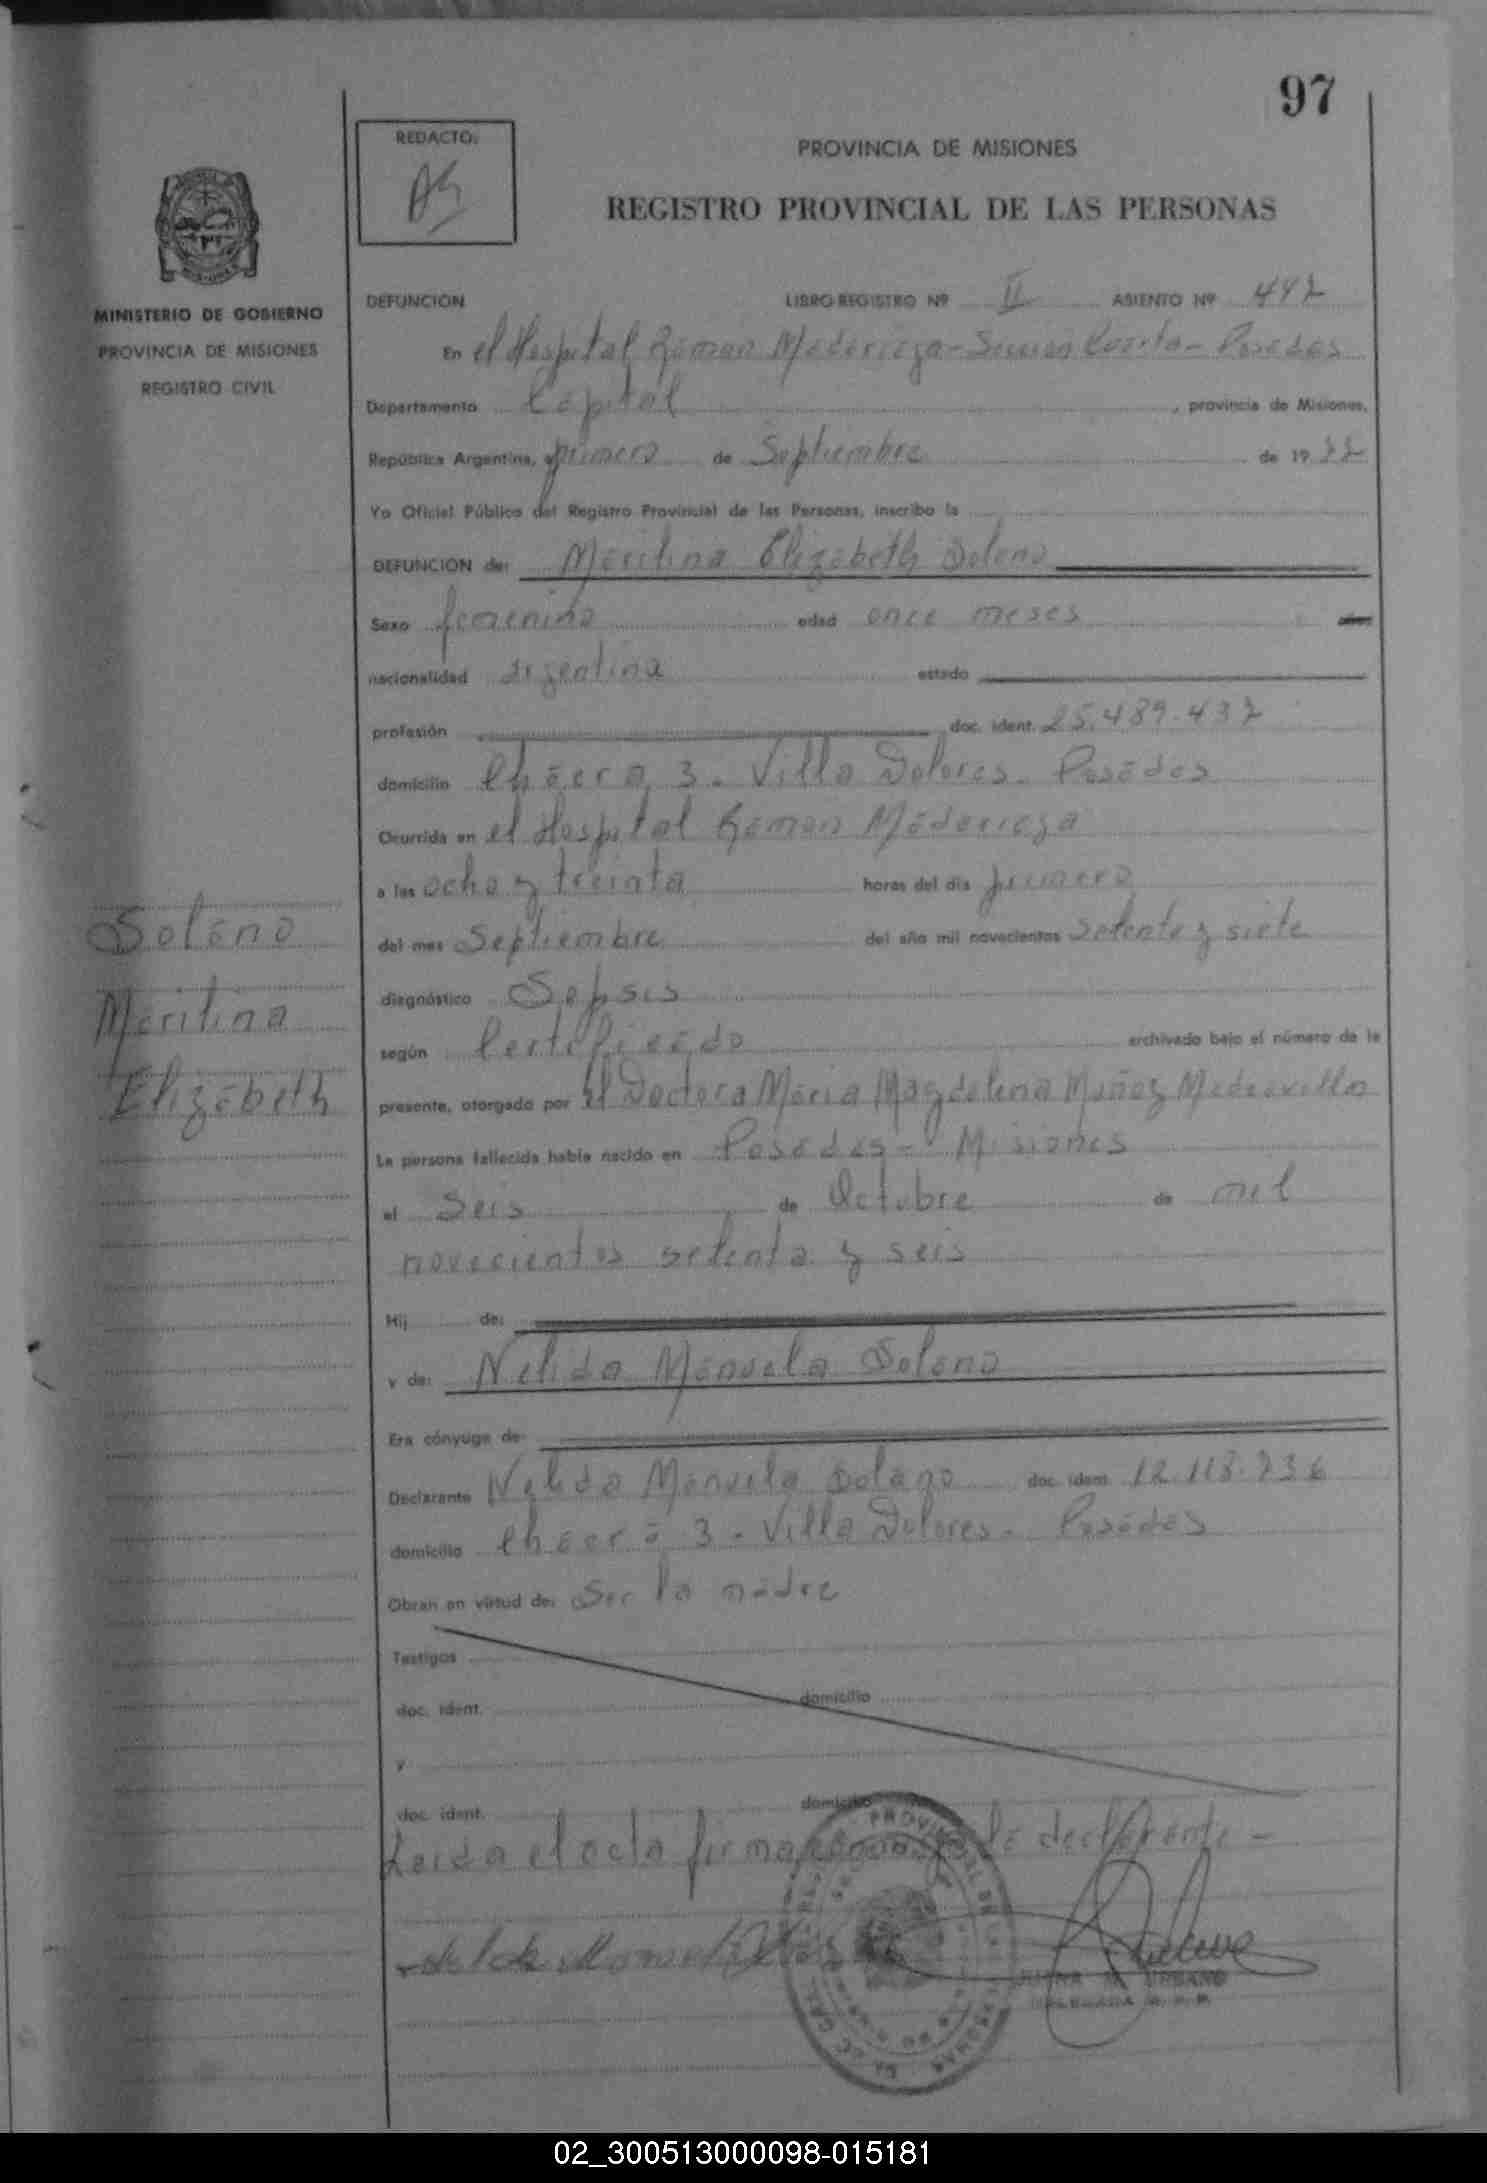 97
REDACTO:
PROVINCIA DE MISIONES
REGISTRO PROVINCIAL DE LAS PERSONAS
MINISTERIO DE GOBIERNO
PROVINCIA DE MISIONES
REGISTRO CIVIL
DEFUNCION LIBRO REGISTRO Nº II ASIENTO Nº 447
En el Hospital Ramon Madariaga - Sección Cuarta - Posadas
Departamento Capital, provincia de Misiones,
República Argentina, a primero de Septiembre de 1977
Yo Oficial Público del Registro Provincial de las Personas, inscribo la
DEFUNCION de: Maritina Elizabeth Solano
Sexo femenino edad once meses años
nacionalidad argentina estado
profesión doc. ident. 25.489.437
domicilio Chacra 3 - Villa Dolores - Posadas
Ocurrida en el Hospital Ramon Madariaga
a las ocho y treinta horas del día primero
del mes Septiembre del año mil novecientos setenta y siete
diagnóstico Sepsis
según Certificado archivado bajo el número de la
presente, otorgado por el Doctora Maria Magdalena Muñoz
La persona fallecida había nacido en Posadas - Misiones
el seis de Octubre de mil
novecientos setenta y seis
Hij de:
y de: Nelida Manuela Solano
Era cónyuge de:
Declarante Nelida Manuela Solano doc. ident. 12.118.736
domicilio Chacra 3 - Villa Dolores - Posadas
Obran en virtud de: Ser la madre
Testigos
doc. ident. domicilio
y
doc. ident. domicilio
Leida el acta firma la declarante -
URBANO
DELEGADA R. P. P.
Solano
Maritina
Elizabeth
02_300513000098-015181